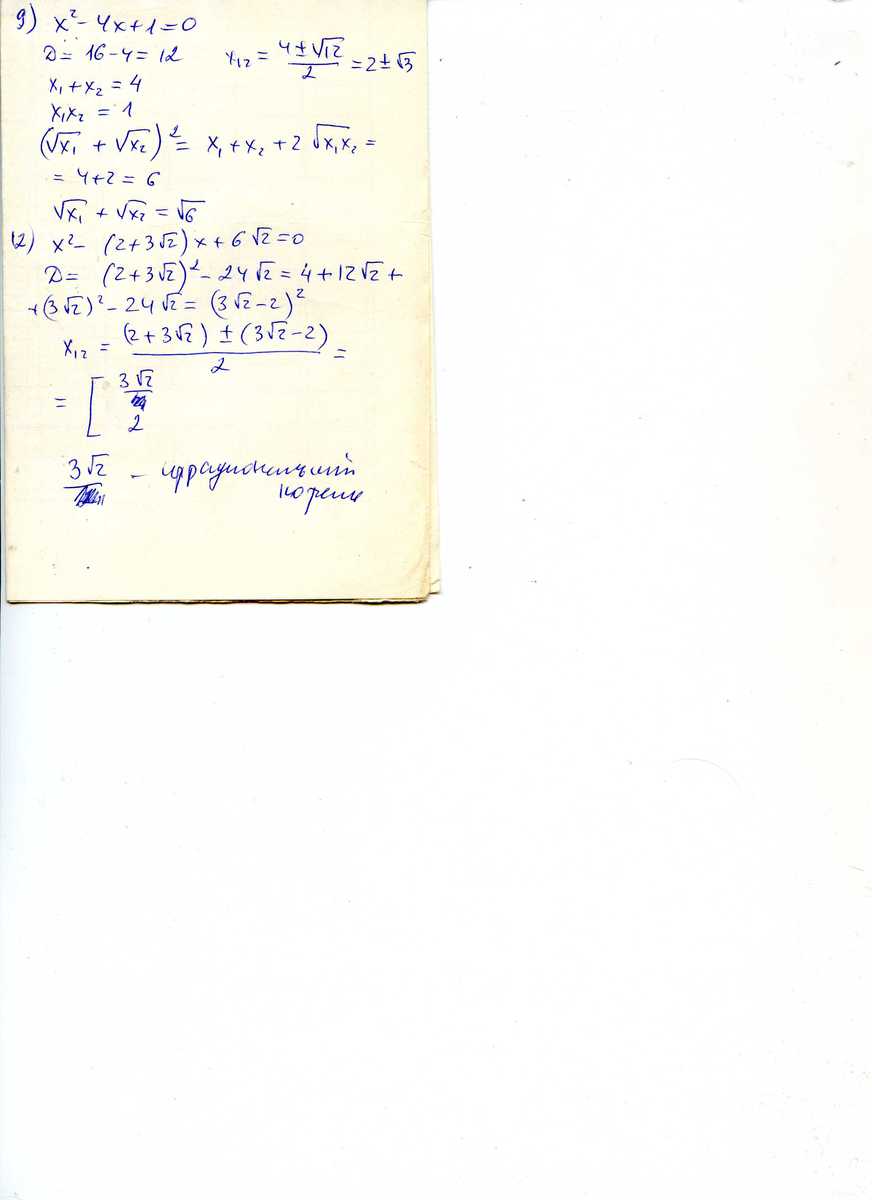 9) x² - 4x + 1 = 0
D = 16 - 4 = 12    x₁₂ = (4 ± √12)/2 = 2 ± √3
x₁ + x₂ = 4
x₁x₂ = 1
(√x₁ + √x₂)² = x₁ + x₂ + 2√x₁x₂ =
= 4 + 2 = 6
√x₁ + √x₂ = √6
12) x² - (2 + 3√2)x + 6√2 = 0
D = (2 + 3√2)² - 24√2 = 4 + 12√2 +
+ (3√2)² - 24√2 = (3√2 - 2)²
x₁₂ = ((2 + 3√2) ± (3√2 - 2))/2 =
= [ 3√2
2
3√2 - иррациональный
корень